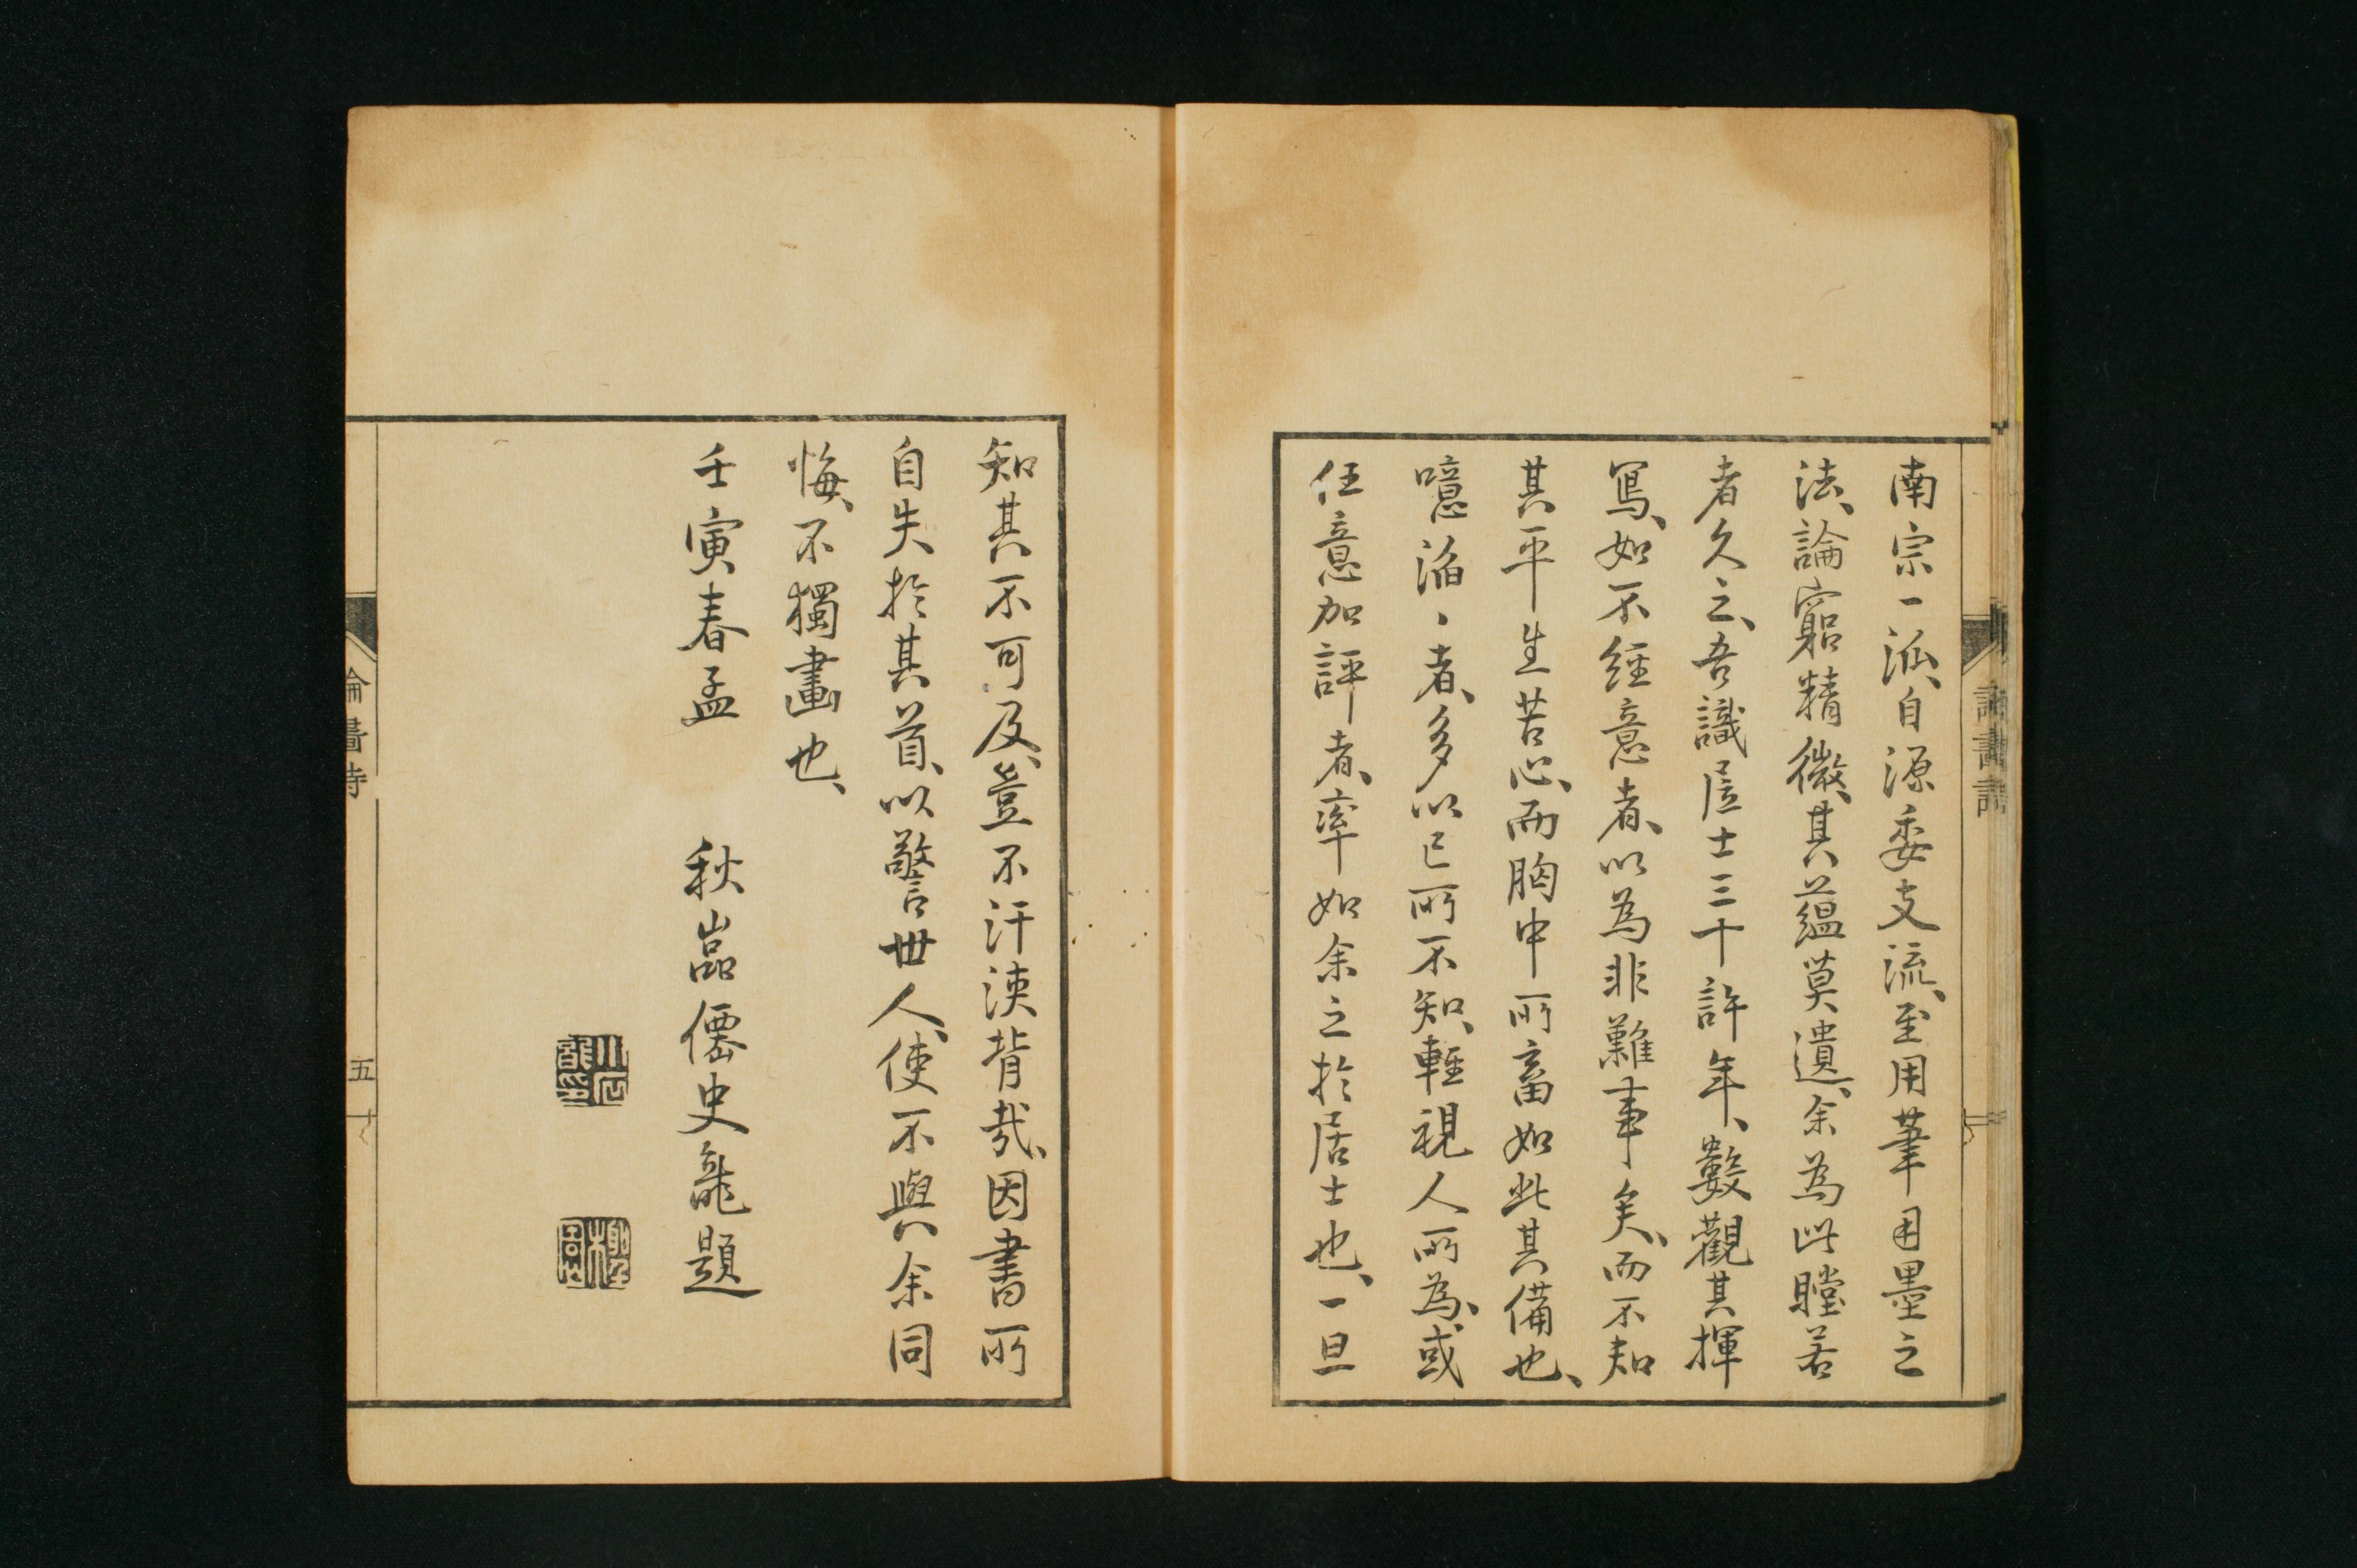 南宗一派、自源委支流、至用筆用墨之
法、論窮精微、其蘊莫遺、余為此瞠若
者久之、吾識居士三十許年、數觀其揮
寫、如不經意者、以為非難事矣、而不知
其平生苦心、而胸中所畜如此其備也、
噫滔、者、多以已所不知、輕視人所為、或
任意加評者、率如余之於居士也、一旦
知其不可及、豈不汗浹背哉、因書所
自失於其首、以警世人、使不與余同
悔、不獨畫也、
壬寅春孟 秋嵓僊史龍題
論畫詩
五